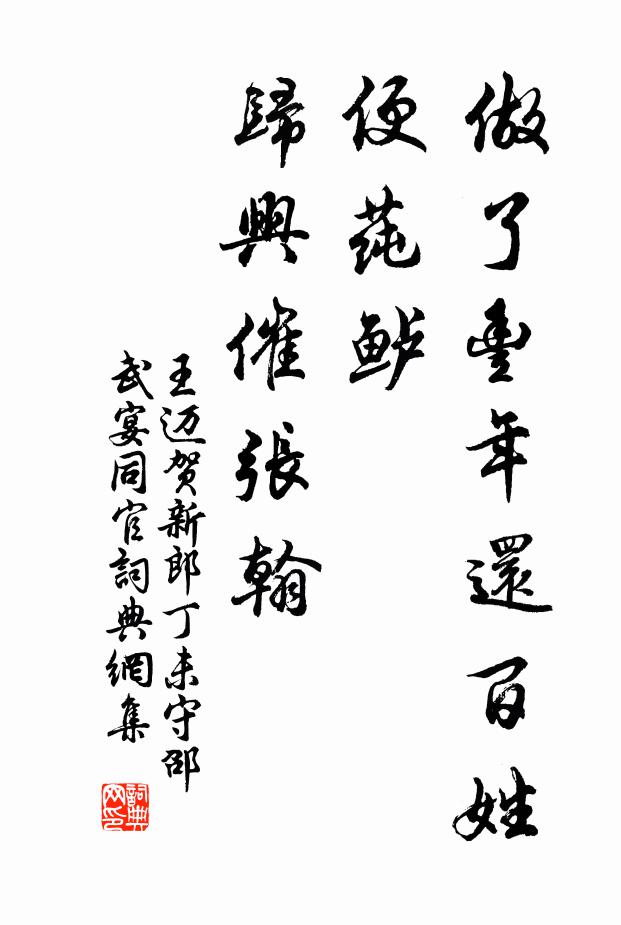 做了豊年還百姓
便莼鲈
歸興催張翰
王迈贺新郎丁未守邵
武宴同官詞典網集
詞典网印